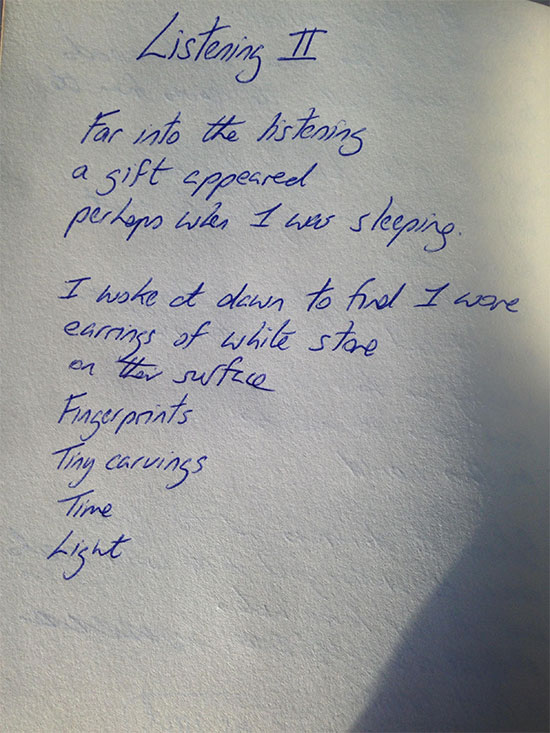 Listening II
Far into the listening
a gift appeared
perhaps when I was sleeping.
I woke at dawn to find I wore
earrings of white stone
on their surface
Fingerprints
Tiny carvings
Time
Light